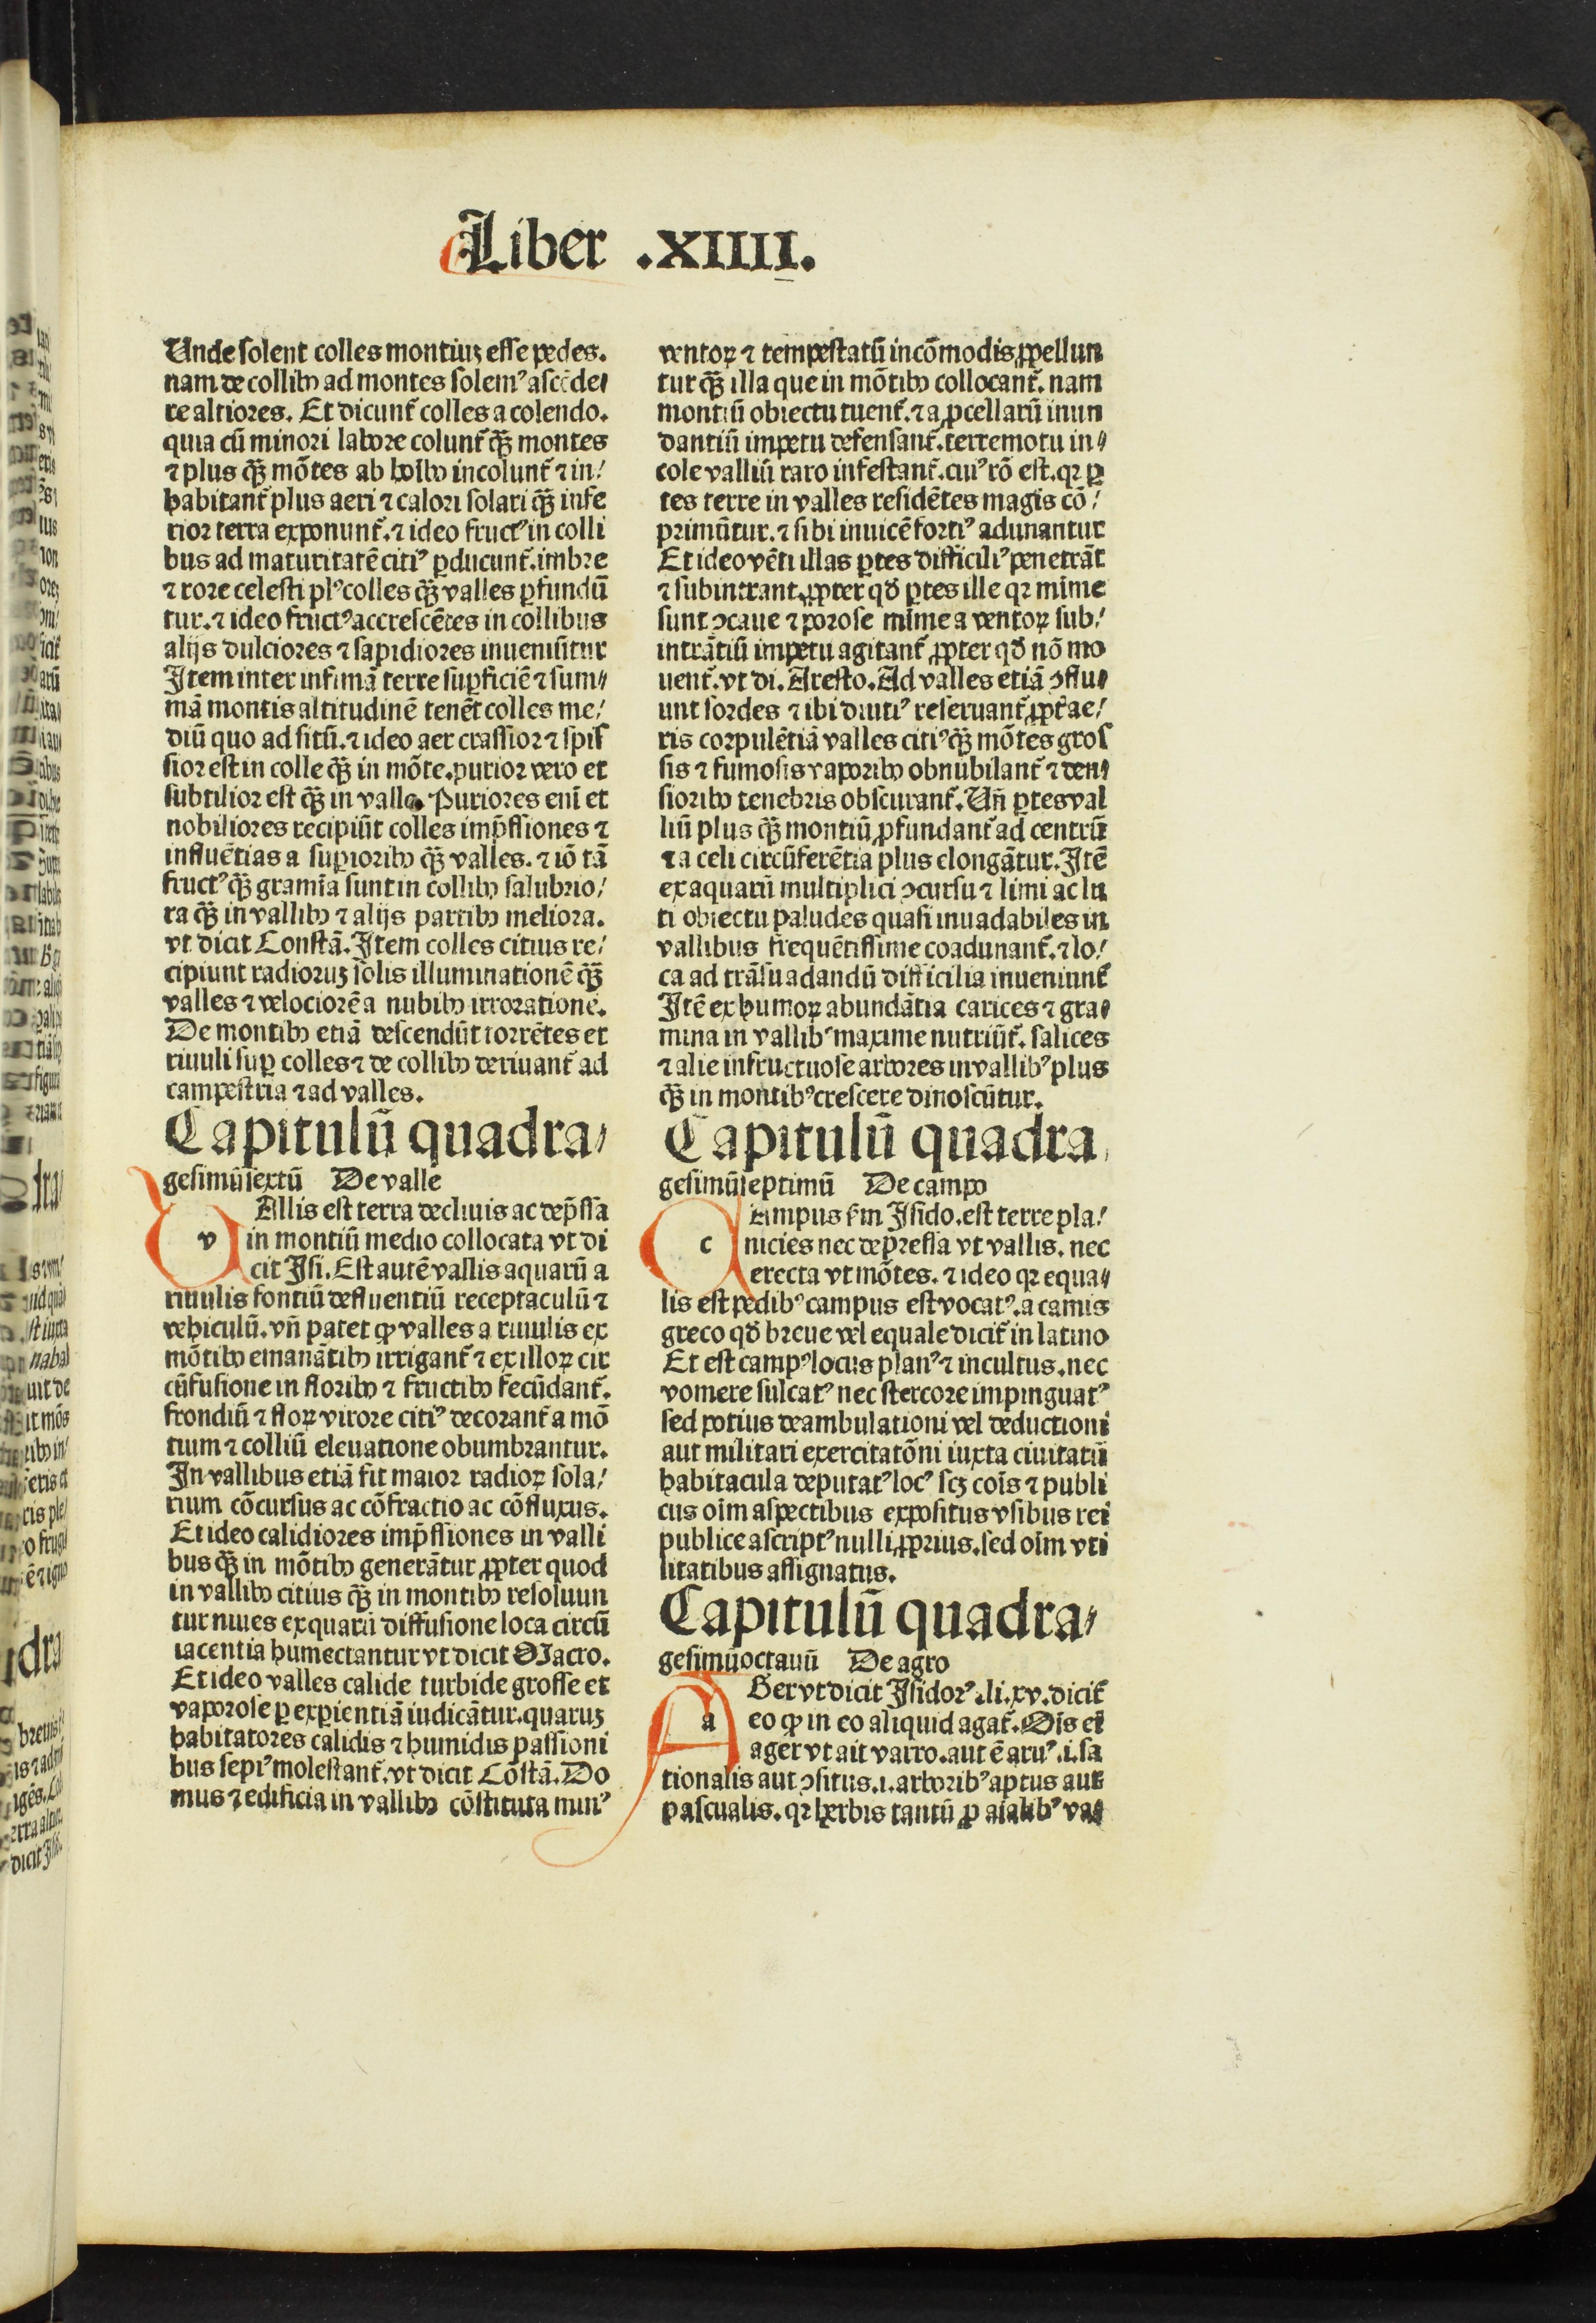 Liber .XIIII.
Unde solent colles montiuꝫ esse pedes.
nam de collibꝰ ad montes solemꝰ ascēde/
re altiores. Et dicunt̃ colles a colendo.
quia cū minori labore colunt̃ qꝫ̃ montes
⁊ plus qꝫ̃ mōtes ab hoībꝰ incolunt̃ ⁊ in/
habitant̃ plus aeri ⁊ calori solari qꝫ̃ infe
rior terra exponunt̃. ⁊ ideo fructꝰ in colli
bus ad maturitatē citiꝰ ꝑducunt̃. imbre
⁊ rore celesti plꝰ colles qꝫ̃ valles ꝑfundū
tur. ⁊ ideo fructꝰ accrescētes in collibus
alijs dulciores ⁊ sapidiores inueniūtur
Item inter infimā terre suꝑficiē ⁊ sum//
mā montis altitudinē tenēt colles me/
diū quo ad sitū. ⁊ ideo aer crassior ⁊ spis
sior est in colle qꝫ̃ in mōte. purior vero et
subtilior est qꝫ̃ in valle. Puriores enī et
nobiliores recipiūt colles imp̄ssiones ⁊
influētias a suꝑioribꝰ qꝫ̃ valles. ⁊ iō tā
fructꝰ qꝫ̃ gramīa sunt in collibꝰ salubrio/
ra qꝫ̃ in vallibꝰ ⁊ alijs partibꝰ meliora.
vt dicit Constā. Item colles citius re/
cipiunt radioruꝫ solis illuminationē qꝫ̃
valles ⁊ velociorē a nubibꝰ irrorationē.
De montibꝰ etiā descendūt torrētes et
riuuli suꝑ colles ⁊ de collibꝰ deriuant̃ ad
campestria ⁊ ad valles.
Capitulū quadra/
gesimūsextū De valle
v Allis est terra decliuis ac dep̄ssa
in montiū medio collocata vt di
cit Isi. Est autē vallis aquarū a
riuulis fontiū defluentiū receptaculū ⁊
vehiculū. vn̄ patet ꝙ valles a riuulis ex
mōtibꝰ emanātibꝰ irrigant̃ ⁊ ex illoꝝ cir
cūfusione in floribꝰ ⁊ fructibꝰ fecūdant̃.
frondiū ⁊ floꝝ virore citiꝰ decorant̃ a mō
tium ⁊ colliū eleuatione obumbrantur.
In vallibus etiā fit maior radioꝝ sola/
rium cōcursus ac cōfractio ac cōfluxus.
Et ideo calidiores imp̄ssiones in valli
bus qꝫ̃ in mōtibꝰ generātur ꝓpter quod
in vallibꝰ citius qꝫ̃ in montibꝰ resoluun
tur niues ex quarū diffusione loca circū
iacentia humectantur vt dicit Macro.
Et ideo valles calide turbide grosse et
vaporose ꝑ exꝑientiā iudicātur. quaruꝫ
habitatores calidis ⁊ humidis passioni
bus sepiꝰ molestant̃. vt dicit Cōstā. Do
mus ⁊ edificia in vallibꝰ cōstituta minꝰ
ventoꝝ ⁊ tempestatū incōmodis ꝓpellun
tur qꝫ̃ illa que in mōtibꝰ collocant̃. nam
montiū obiectu tuent̃. ⁊ a ꝓcellarū inun
dantiū impetu defensant̃. terremotu in//
cole valliū raro infestant̃. cuiꝰ rō est. qꝛ ꝑ
tes terre in valles residētes magis cō/
primūtur. ⁊ sibi inuicē fortiꝰ adunantur
Et ideo vēti illas ꝑtes difficiliꝰ penetrāt
⁊ subintrant. ꝓpter qd̄ ꝑtes ille qꝛ mīme
sunt ↄcaue ⁊ porose mīme a ventoꝝ sub/
intrātiū impetu agitant̃ ꝓpter qd̄ nō mo
uent̃. vt di. Aresto. Ad valles etiā ↄflu/
unt sordes ⁊ ibi diutiꝰ reseruant̃ ꝓpt̄ ae/
ris corpulētiā valles citiꝰ qꝫ̃ mōtes gros
sis ⁊ fumosis vaporibꝰ obnubilant̃ ⁊ den/
sioribꝰ tenebris obscurant̃. Un̄ ꝑtes val
liū plus qꝫ̃ montiū ꝓfundant̃ ad centrū
⁊ a celi circūferētia plus elongātur. Itē
ex aquarū multiplici ↄcursu ⁊ limi ac lu
ti obiectu paludes quasi inuadabiles in
vallibus frequētissime coadunant̃. ⁊ lo/
ca ad trāsuadandū difficilia inueniunt̃
Itē ex humoꝝ abundātia carices ⁊ gra/
mina in vallibꝰ maxime nutriūt̃. salices
⁊ alie infructuose arbores in vallibꝰ plus
qꝫ̃ in montibꝰ crescere dinoscūtur.
Capitulū quadra
gesimūseptimū De campo
c Ampus ẜm Isido. est terre pla/
nicies nec dep̄ressa vt vallis. nec
erecta vt mōtes. ⁊ ideo qꝛ equa//
lis est pedibꝰ campus est vocatꝰ. a camis
greco qd̄ breue vel equale dicit̃ in latino
Et est campꝰ locus planꝰ ⁊ incultus. nec
vomere sulcatꝰ nec stercore impinguatꝰ
sed potius deambulationi vel deductioni
aut militari exercitatōni iuxta ciuitatū
habitacula deputatꝰ locꝰ scꝫ cōis ⁊ publi
cus oīm aspectibus expositus vsibus rei
publice ascriptꝰ nulli ꝓprius. sed oīm vti
litatibus assignatus.
Capitulū quadra/
gesimūoctauū De agro
a Ger vt dicit Isidorꝰ .li. xv. dicit̃
eo ꝙ in eo aliquid agat̃. Oīs ei
ager vt ait varro. aut ē aruꝰ .i. sa
tionalis aut ↄsitus .i. arboribꝰ aptus aut
pascualis. qꝛ herbis tantū ꝓ aīalibꝰ va/